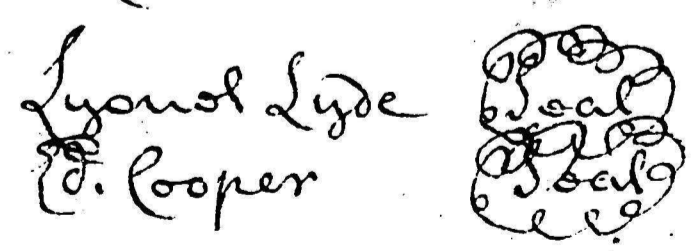 Lyonol Lyde Seal
Ed. Cooper Seal